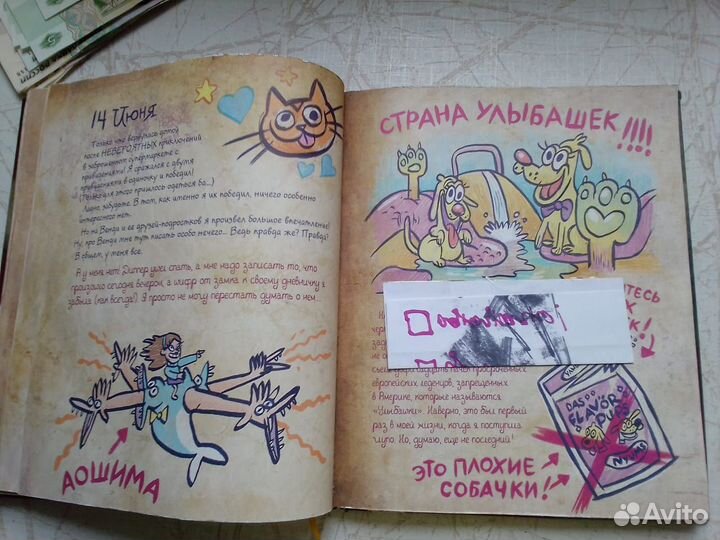 14 Июня
Только что вернулись домой
после НЕВЕРОЯТНЫХ приключений
в заброшенном супермаркете с
привидениями! Я сражался с двумя
привидениями в одиночку и победил!
(Только для этого пришлось одеться ба...)
Ладно, забудьте. В том, как именно я их победил, ничего особенно
интересного нет.
Но на Венди и ее друзей-подростков я произвел большое впечатление!
Ну, про Венди мне тут писать особо нечего... Ведь правда же? Правда?
В общем, у меня все.
А у меня нет! Диппер ушел спать, а мне надо записать то, что
произошло сегодня вечером, а шифр от замка к своему дневничку я
забыла (как всегда!) Я просто не могу перестать думать о нем...
АОШИМА
СТРАНА УЛЫБАШЕК!!!!
ТЕСЬ
европейских леденцов, запрещенных
в Америке, которые называются
«Улыбашки». Наверно, это был первый
раз в моей жизни, когда я поступила
глупо. Но, думаю, еще не последний!
ЭТО ПЛОХИЕ
СОБАЧКИ!
DAS
FLAVOR
Avito